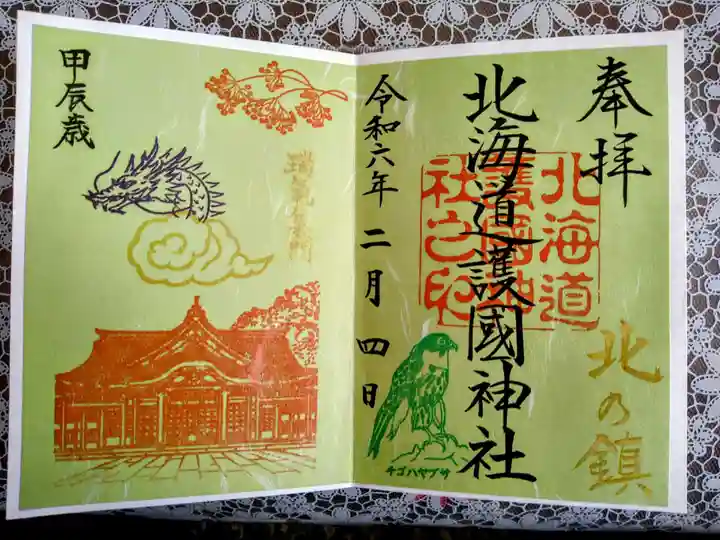 奉拝
北海道護國神社
北海道護國神社之印
北の鎮
令和六年 二月 四日
チゴハヤブサ
甲辰歳